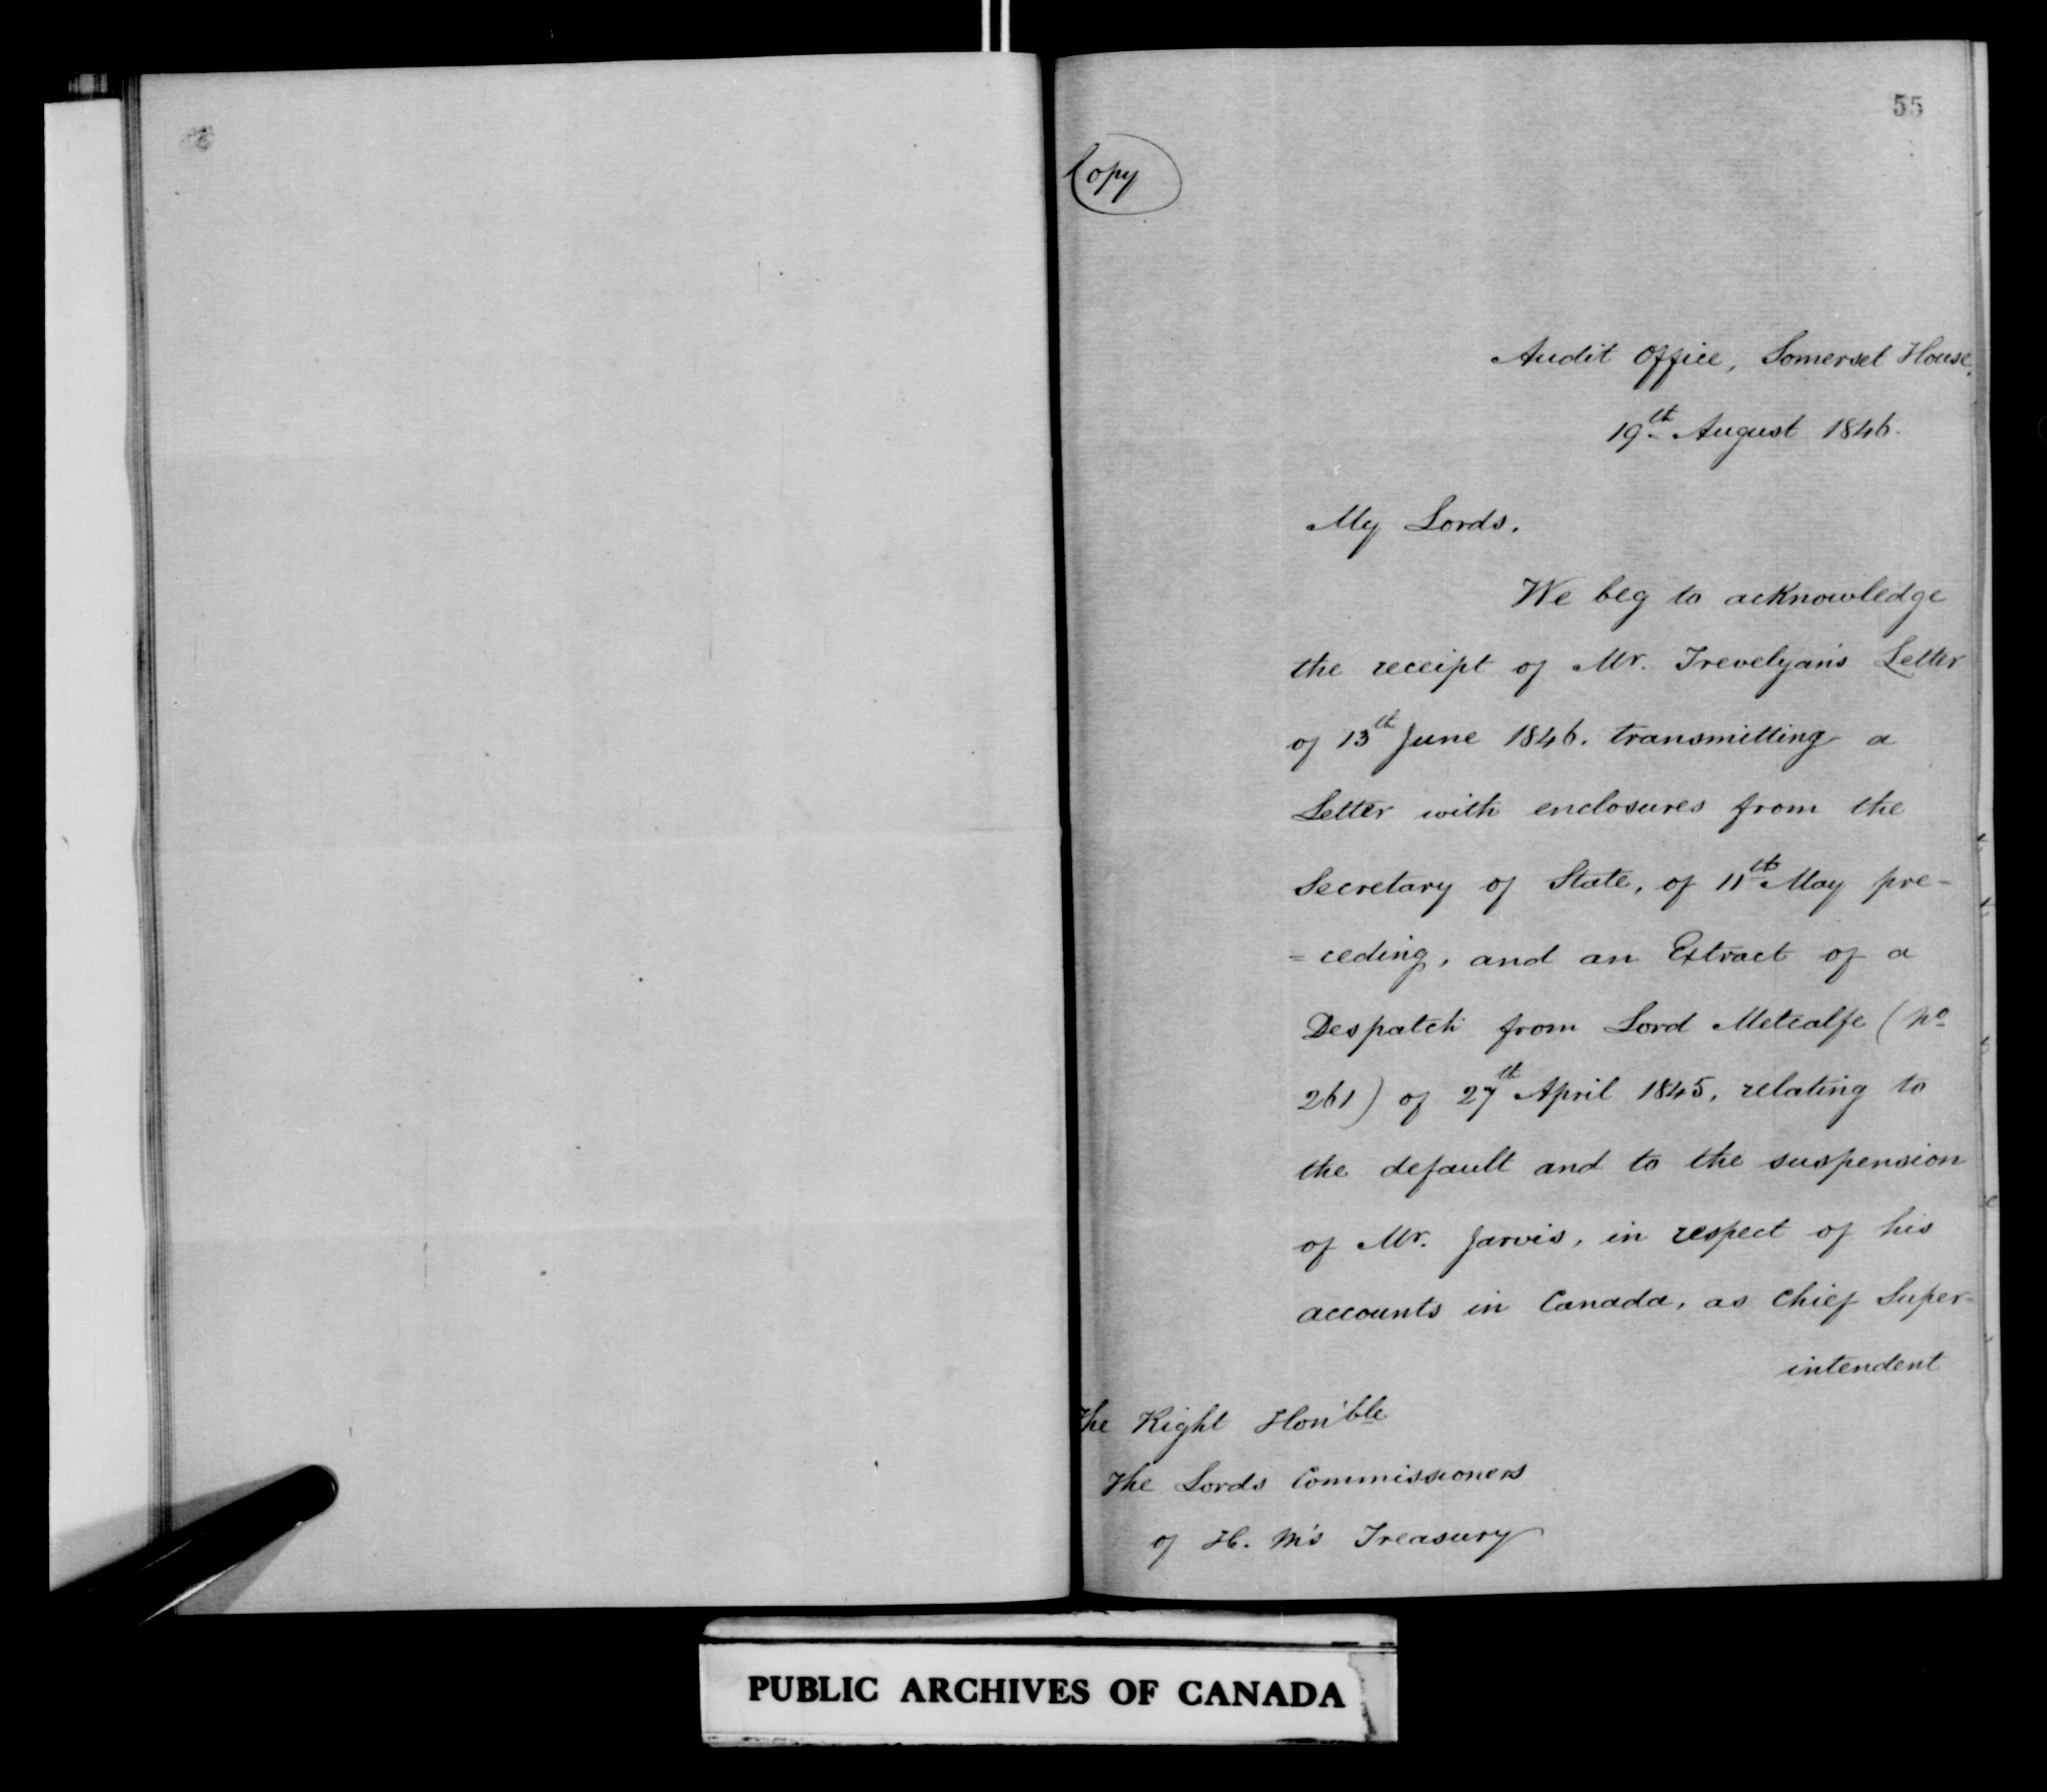 55
Copy
Audit Office, Somerset House.
19th August 1846.
My Lords.
We beg to acknowledge
the receipt of Mr. Trevelyan's Letter
of 13th June 1846. transmitting a
Letter with enclosures from the
Secretary of State, of 11th May pre-
=ceding, and an Extract of a
Despatch from Lord Metcalfe (No
261) of 27th April 1845, relating to
the default and to the suspension
of Mr. Jarvis, in respect of his
accounts in Canada, as Chief Super-
intendent
The Right Hon'ble
The Lords Commissioners
of H. M's Treasury
PUBLIC ARCHIVES OF CANADA